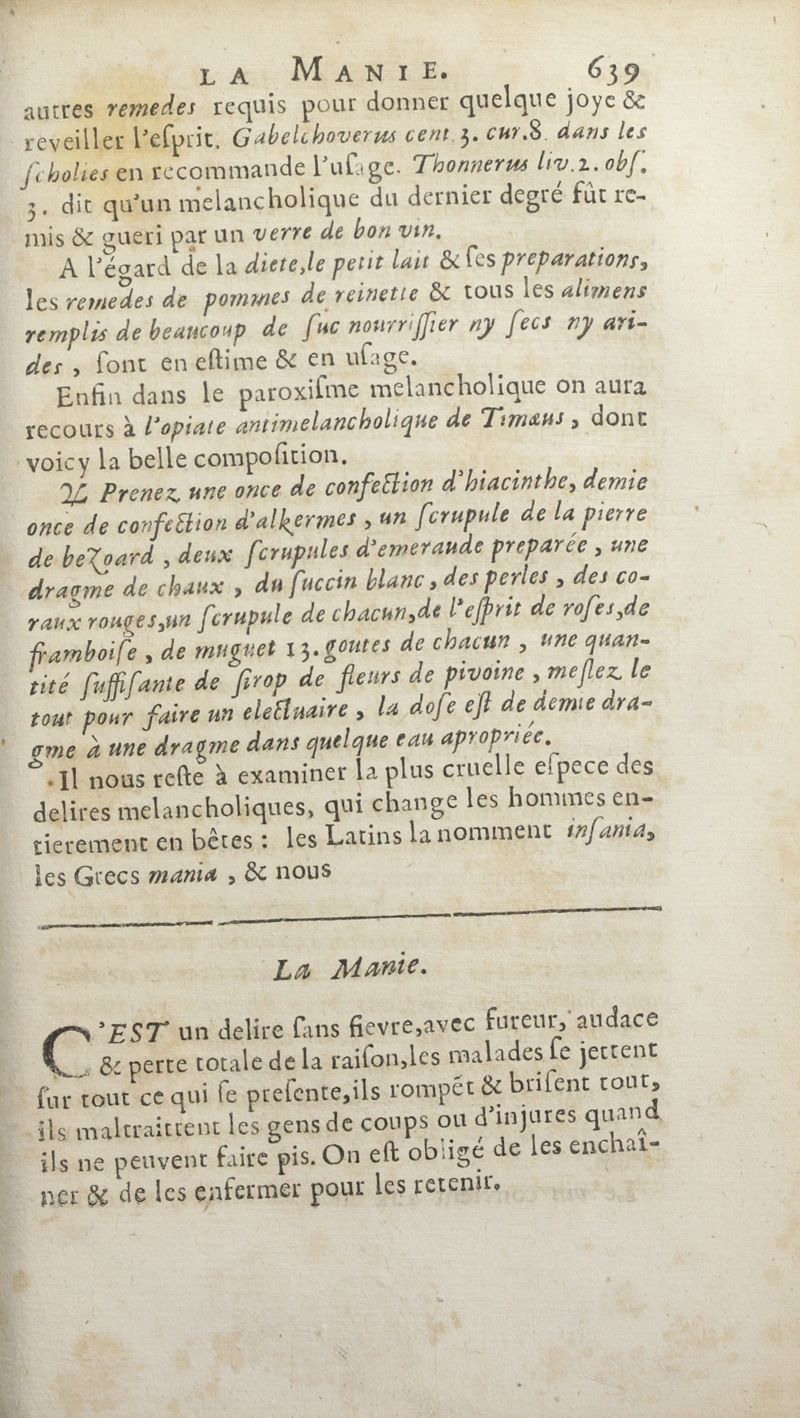 LA MANIE. 639
autres remedes requis pour donner quelque joye &
reveiller l'eſprit. Gabelchoverus cent. 3. cur.8. dans les
ſcholies en recommande l'uſage. Thonnerus liv. 2. obſ.
3. dit qu'un melancholique du dernier degré fût re-
mis & gueri par un verre de bon vin.
A l'égard de la diete, le petit lait & ſes preparations,
les remedes de pommes de reinette & tous les alimens
remplis de beaucoup de ſuc nourriſſier ny ſecs ny ari-
des, ſont en eſtime & en uſage.
Enfin dans le paroxiſme melancholique on aura
recours à l'opiate antimelancholique de Timæus, dont
voicy la belle compoſition.
♃ Prenez une once de confection d'hiacinthe, demie
once de confection d'alkermes, un ſcrupule de la pierre
de bezoard, deux ſcrupules d'emeraude preparée, une
dragme de chaux, du ſuccin blanc, des perles, des co-
raux rouges, un ſcrupule de chacun, de l'eſprit de roſes, de
framboiſe, de muguet 13. goutes de chacun, une quan-
tité ſuffiſante de ſirop de fleurs de pivoine, meſlez le
tout pour faire un electuaire, la doſe eſt de demie dra-
gme à une dragme dans quelque eau apropriée.
Il nous reſte à examiner la plus cruelle eſpece des
delires melancholiques, qui change les hommes en-
tierement en bêtes : les Latins la nomment inſania,
les Grecs mania, & nous
La Manie.
C'EST un delire ſans fievre, avec fureur, audace
& perte totale de la raiſon, les malades ſe jettent
ſur tout ce qui ſe preſente, ils rompēt & briſent tout,
ils maltraittent les gens de coups ou d'injures quand
ils ne peuvent faire pis. On eſt obligé de les enchaî-
ner & de les enfermer pour les retenir.